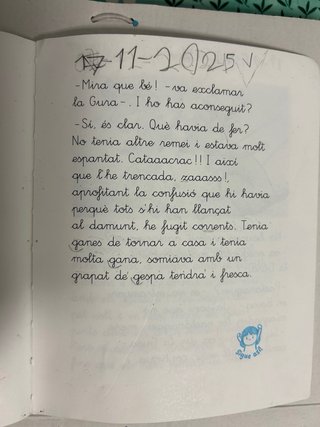 17-11-2025
-Mira que bé! -va exclamar
la Gura-. I ho has aconseguit?
-Sí, és clar. Què havia de fer?
No tenia altre remei i estava molt
espantat. Cataaacrac!! I així
que l'he trencada, zaaasss!,
aprofitant la confusió que hi havia
perquè tots s'hi han llançat
al damunt, he fugit corrents. Tenia
ganes de tornar a casa i tenia
molta gana, somiava amb un
grapat de gespa tendra i fresca.
Sigue así!